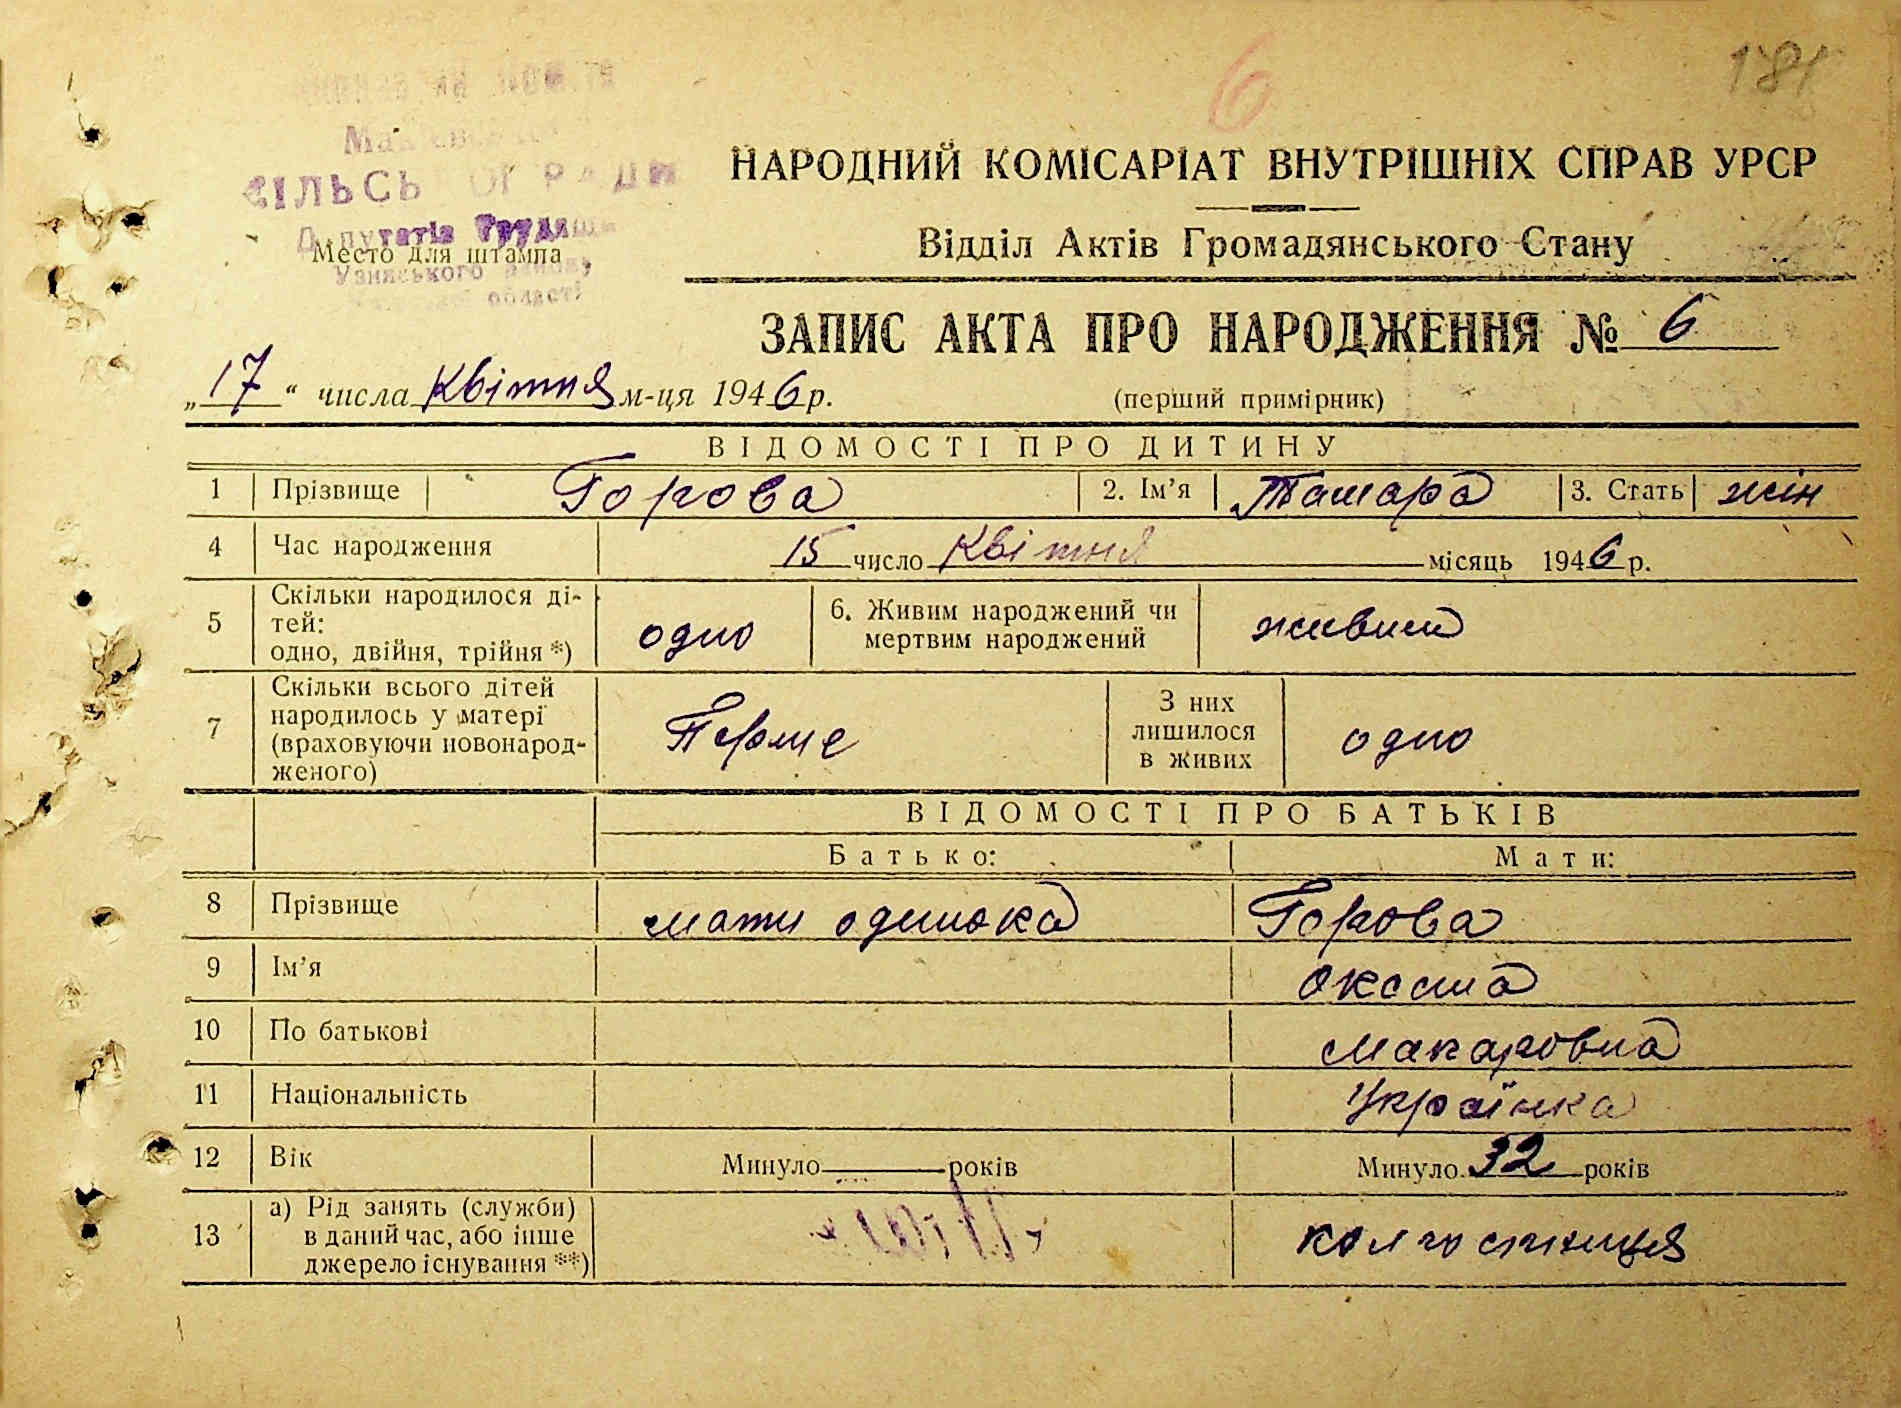 181
6
НАРОДНИЙ КОМІСАРІАТ ВНУТРІШНІХ СПРАВ УРСР
СІЛЬСЬКОЇ РАДИ
Депутатів Трудящих
Место для штампа
Узинського району
області
Відділ Актів Громадянського Стану
ЗАПИС АКТА ПРО НАРОДЖЕННЯ № 6
„17“ числа Квітня м-ця 1946 р.
(перший примірник)
ВІДОМОСТІ ПРО ДИТИНУ
1 Прізвище Горова 2. Ім’я Тамара 3. Стать жін
4 Час народження 15 число Квітня місяць 1946 р.
5 Скільки народилося ді-
тей:
одно, двійня, трійня *) одно
6. Живим народжений чи
мертвим народжений живим
7 Скільки всього дітей
народилось у матері
(враховуючи новонарод-
женого) Перше
З них
лишилося
в живих одно
ВІДОМОСТІ ПРО БАТЬКІВ
Батько: Мати:
8 Прізвище мати одинока Горова
9 Ім’я Оксана
10 По батькові Макаровна
11 Національність Українка
12 Вік Минуло років Минуло 32 років
13 а) Рід занять (служби)
в даний час, або інше
джерело існування **) колгоспниця